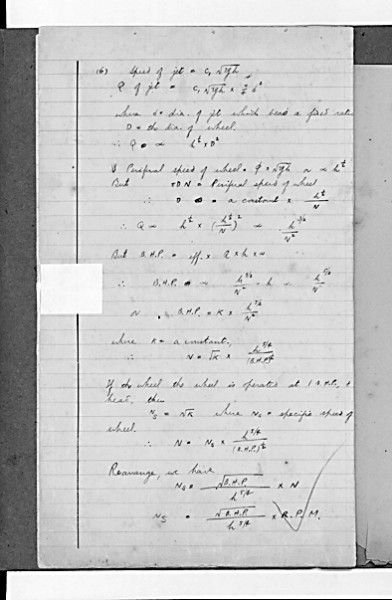 (6) Speed of jet = c, √2gh
Q of jet = c, √2gh × π/4 d²
where d = dia. of jet which bears a fixed ratio
D = the dia. of wheel.
∴ Q ∝ h^½ × D²
Periferal speed of wheel = φ × √2gh ∝ h^½
But πDN = Periferal speed of wheel
∴ D = a constant × h^½/N
∴ Q ∝ h^½ × (h^½/N)² ∝ h^3/2/N²
But B.H.P. = eff. × Q × h × w
∴ B.H.P. ∝ h^3/2/N² × h ∝ h^5/2/N²
B.H.P. = K × h^5/2/N²
where K = a constant.
∴ N = √K × h^5/4/(B.H.P.)^½
If the wheel is operated at 1 B.H.P. +
head, then
Ns = √K where Ns = specific speed of
wheel.
∴ N = Ns × h^5/4/(B.H.P.)^½
Rearrange, we have
Ns = √B.H.P./h^5/4 × N
Ns = √B.H.P./h^5/4 × R.P.M.